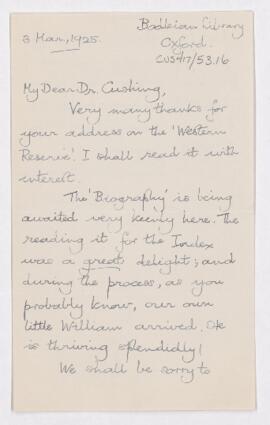 Bodleian Library
3 Mar, 1925.
Oxford.
CUS417/53.16
My Dear Dr. Cushing,
Very many thanks for
your address on the 'Western
Reserve'. I shall read it with
interest.
The 'Biography' is being
awaited very keenly here. The
reading it for the Index
was a great delight; and
during the process, as you
probably know, our own
little William arrived. He
is thriving splendidly!
We shall be sorry to